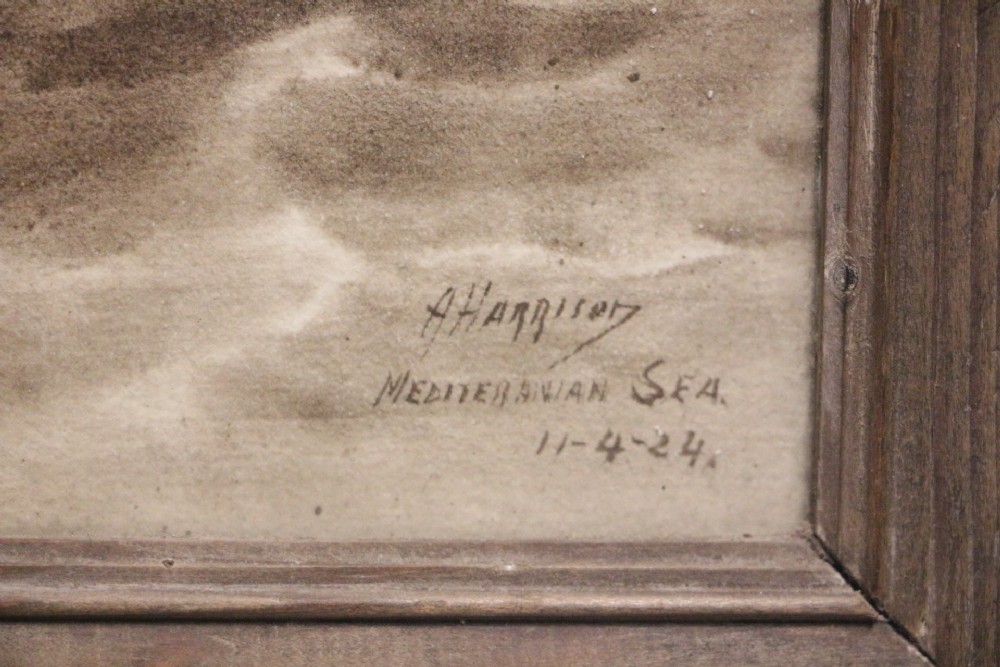 A Harrison
MEDITERANIAN SEA.
11-4-24.